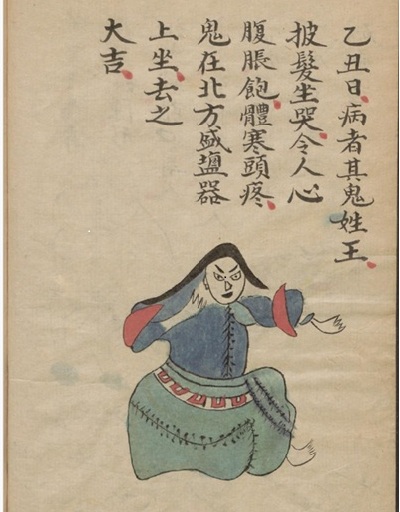 乙丑日病者其鬼姓王
披髮坐哭令人心
腹脹飽體寒頭疼
鬼在北方盛塩器
上坐去之
大吉